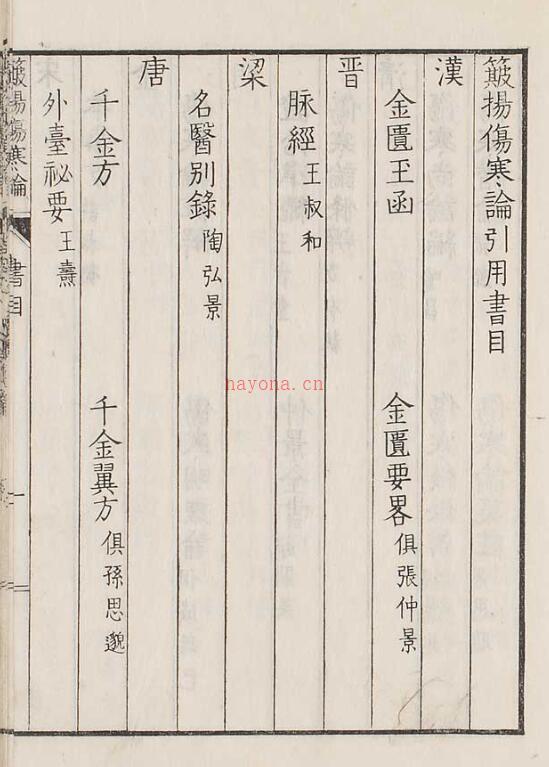 簸揚傷寒論引用書目
漢
金匱玉函 金匱要畧 俱張仲景
晋
脉經 王叔和
梁
名醫別錄 陶弘景
唐
千金方 千金翼方 俱孫思邈
外臺祕要 王燾
簸揚傷寒論 書目
nayona.cn